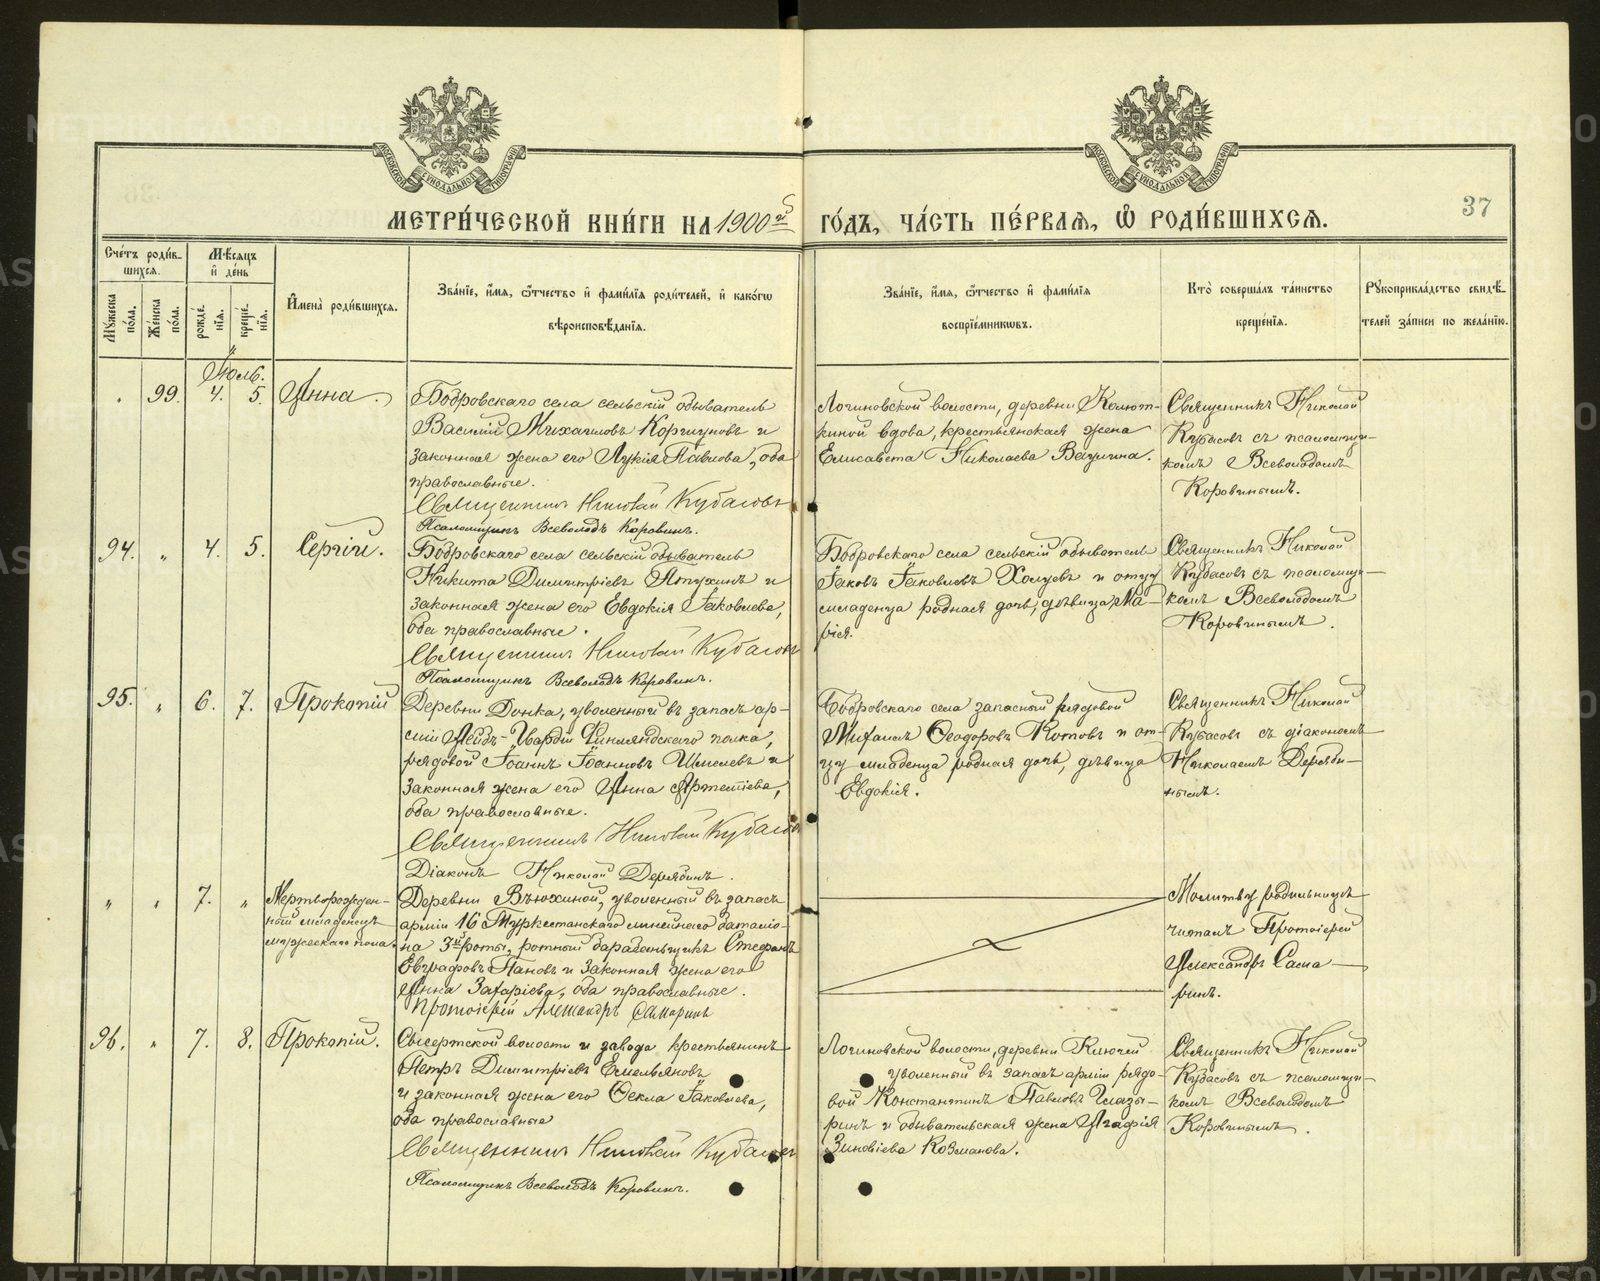 МОСКОВСКОЙ СѴНОДАЛЬНОЙ ТИПОГРАФІИ
МОСКОВСКОЙ СѴНОДАЛЬНОЙ ТИПОГРАФІИ
37
МЕТРИ́ЧЕСКОЙ КНИ́ГИ НА 1900й ГО́ДЪ, ЧА́СТЬ ПЕ́РВАѦ, Ѿ РОДИ́ВШИХСѦ.
Сче́тъ роди́в-
шихсѧ.
Мѣ́сяцъ
и҆ де́нь
Мꙋ́жеска
по́ла.
Же́нска
по́ла.
рожде́-
нїѧ.
креще́-
нїѧ.
И҆мена̀ роди́вшихсѧ.
Зва́нїе, и҆́мѧ, ѻ҆́тчество и҆ фами́лїѧ роди́телей, и҆ како́гѡ
вѣроисповѣ́данїѧ.
Зва́нїе, и҆́мѧ, ѻ҆́тчество и҆ фами́лїѧ
воспрїе́мниковъ.
Кто̀ соверша́лъ та́инство
креще́нїѧ.
Рꙋкоприкла́дство свидѣ́-
телей за́писи по жела́нїю.
Іюль.
99. 4. 5. Анна.
Бобровскаго села сельскій обыватель
Василій Михаиловъ Коршуновъ и
законная жена его Лукія Павлова, оба
православные.
Священникъ Николай Кубасовъ
Псаломщикъ Всеволодъ Коровинъ.
Логиновской волости, деревни Колют-
киной вдова, крестьянская жена
Елисавета Николаева Вагина.
Священникъ Николай
Кубасовъ съ псаломщи-
комъ Всеволодомъ
Коровинымъ.
94. " 4. 5. Сергій.
Бобровскаго села сельскій обыватель
Никита Димитріевъ Япухинъ и
законная жена его Евдокія Іаковлева,
оба православные.
Священникъ Николай Кубасовъ
Псаломщикъ Всеволодъ Коровинъ.
Бобровскаго села сельскій обыватель
Іаковъ Іаковлевъ Холуевъ и отцу
младенца родная дочь, дѣвица Ма-
рія.
Священникъ Николай
Кубасовъ съ псаломщи-
комъ Всеволодомъ
Коровинымъ.
95. " 6. 7. Прокопій
Деревни Донка, уволенный въ запасъ ар-
міи Лейбъ-Гвардіи Финляндскаго полка,
рядовой Іоаннъ Іоанновъ Шмелевъ и
законная жена его Анна Артеміева,
оба православные.
Священникъ Николай Кубасовъ
Діаконъ Николай Дерябинъ.
Бобровскаго села запасный рядовой
Михаилъ Ѳеодоровъ Котовъ и от-
цу младенца родная дочь, дѣвица
Евдокія.
Священникъ Николай
Кубасовъ съ діакономъ
Николаемъ Деряби-
нымъ.
" " 7. " Мертворожден-
ный младенецъ
мужескаго пола.
Деревни Вьюхиной, уволенный въ запасъ
арміи 16 Туркестанскаго линейнаго баталіо-
на 3й роты, ротный барабанщикъ Стефанъ
Евграфовъ Пановъ и законная жена его
Анна Захаріева, оба православные.
Протоіерей Александръ Самаринъ
Молитву родильницѣ
читалъ Протоіерей
Александръ Сама-
ринъ.
96. " 7. 8. Прокопій.
Сысертской волости и завода крестьянинъ
Петръ Димитріевъ Емельяновъ
и законная жена его Ѳекла Іаковлева,
оба православные
Священникъ Николай Кубасовъ
Псаломщикъ Всеволодъ Коровинъ.
Логиновской волости, деревни Ключей
уволенный въ запасъ арміи рядо-
вой Константинъ Павловъ Глазы-
ринъ и обывательская жена Агафія
Зиновіева Козманова.
Священникъ Николай
Кубасовъ съ псаломщи-
комъ Всеволодомъ
Коровинымъ.